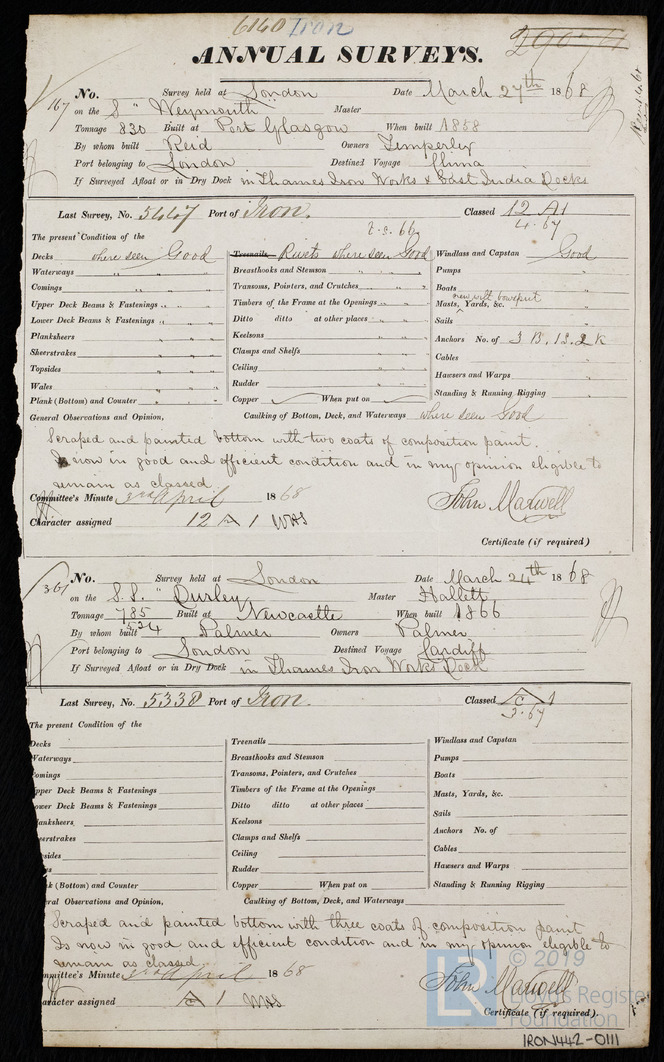 6140 Iron
ANNUAL SURVEYS.
167 No. Survey held at London Date March 27th 1868
on the S "Weymouth" Master
Tonnage 830 Built at Port Glasgow When built 1858
By whom built Reid Owners Temperley
Port belonging to London Destined Voyage China
If Surveyed Afloat or in Dry Dock in Thames Iron Works & East India Docks
Last Survey, No. 5447 Port of Iron. Classed 12 A 1
2.3.66 4.67
The present Condition of the
Decks where seen Good Treenails Rivets where seen Good Windlass and Capstan Good
Waterways " " Breasthooks and Stemson " " Pumps "
Comings " " Transoms, Pointers, and Crutches " " Boats "
new wilt bowsprit
Upper Deck Beams & Fastenings " " Timbers of the Frame at the Openings " " Masts, Yards, &c. "
Lower Deck Beams & Fastenings " " Ditto ditto at other places " " Sails "
Planksheers " " Keelsons " " Anchors No. of 3 B, 1 S, 2 K
Sheerstrakes " " Clamps and Shelfs " " Cables "
Topsides " " Ceiling " " Hawsers and Warps "
Wales " " Rudder " " Standing & Running Rigging "
Plank (Bottom) and Counter " " Copper When put on
General Observations and Opinion, Caulking of Bottom, Deck, and Waterways where seen Good
Scraped and painted bottom with two coats of composition paint.
Is now in good and efficient condition and in my opinion eligible to
remain as classed
Committee's Minute 3rd April 1868 John Maxwell
Character assigned 12 A 1 WAS
Certificate (if required)
361 No. Survey held at London Date March 24th 1868
on the S.S. "Dursley Master Hallett
Tonnage 785 Built at Newcastle When built 1866
524
By whom built Palmer Owners Palmer
Port belonging to London Destined Voyage Cardiff
If Surveyed Afloat or in Dry Dock in Thames Iron Works Dock
Last Survey, No. 5338 Port of Iron. Classed C 1
3.67
The present Condition of the
Decks Treenails Windlass and Capstan
Waterways Breasthooks and Stemson Pumps
omings Transoms, Pointers, and Crutches Boats
pper Deck Beams & Fastenings Timbers of the Frame at the Openings Masts, Yards, &c.
ower Deck Beams & Fastenings Ditto ditto at other places Sails
lanksheers Keelsons Anchors No. of
eerstrakes Clamps and Shelfs Cables
sides Ceiling Hawsers and Warps
s Rudder Standing & Running Rigging
k (Bottom) and Counter Copper When put on
ral Observations and Opinion, Caulking of Bottom, Deck, and Waterways
Scraped and painted bottom with three coats of composition paint
Is now in good and efficient condition and in my opinion eligible to
remain as classed
mmittee's Minute 3rd April 1868 John Maxwell
aracter assigned C 1 WAS
Certificate (if required).
LR © 2019
Lloyd's Register
Foundation
IRON442-0111